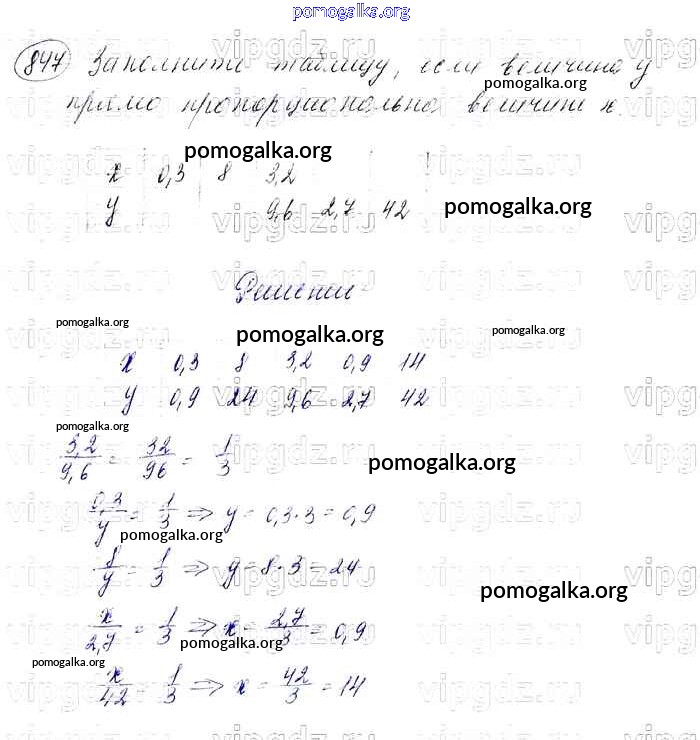 pomogalka.org
847 Заполните таблицу, если величина y
pomogalka.org
прямо пропорциональна величине x.
pomogalka.org
x 0,3 8 3,2
y 9,6 2,7 42
pomogalka.org
Решение
pomogalka.org
pomogalka.org
pomogalka.org
x 0,3 8 3,2 0,9 14
y 0,9 24 9,6 2,7 42
pomogalka.org
3,2/9,6 = 32/96 = 1/3
pomogalka.org
0,3/y = 1/3 ⇒ y = 0,3·3 = 0,9
pomogalka.org
8/y = 1/3 ⇒ y = 8·3 = 24
pomogalka.org
x/2,7 = 1/3 ⇒ x = 2,7/3 = 0,9
pomogalka.org
pomogalka.org
x/42 = 1/3 ⇒ x = 42/3 = 14
vipgdz.ru